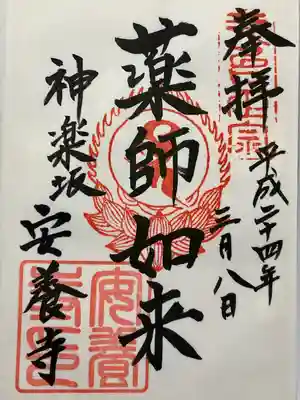 奉拝
平成二十四年
三月八日
薬師如来
神楽坂
安養寺